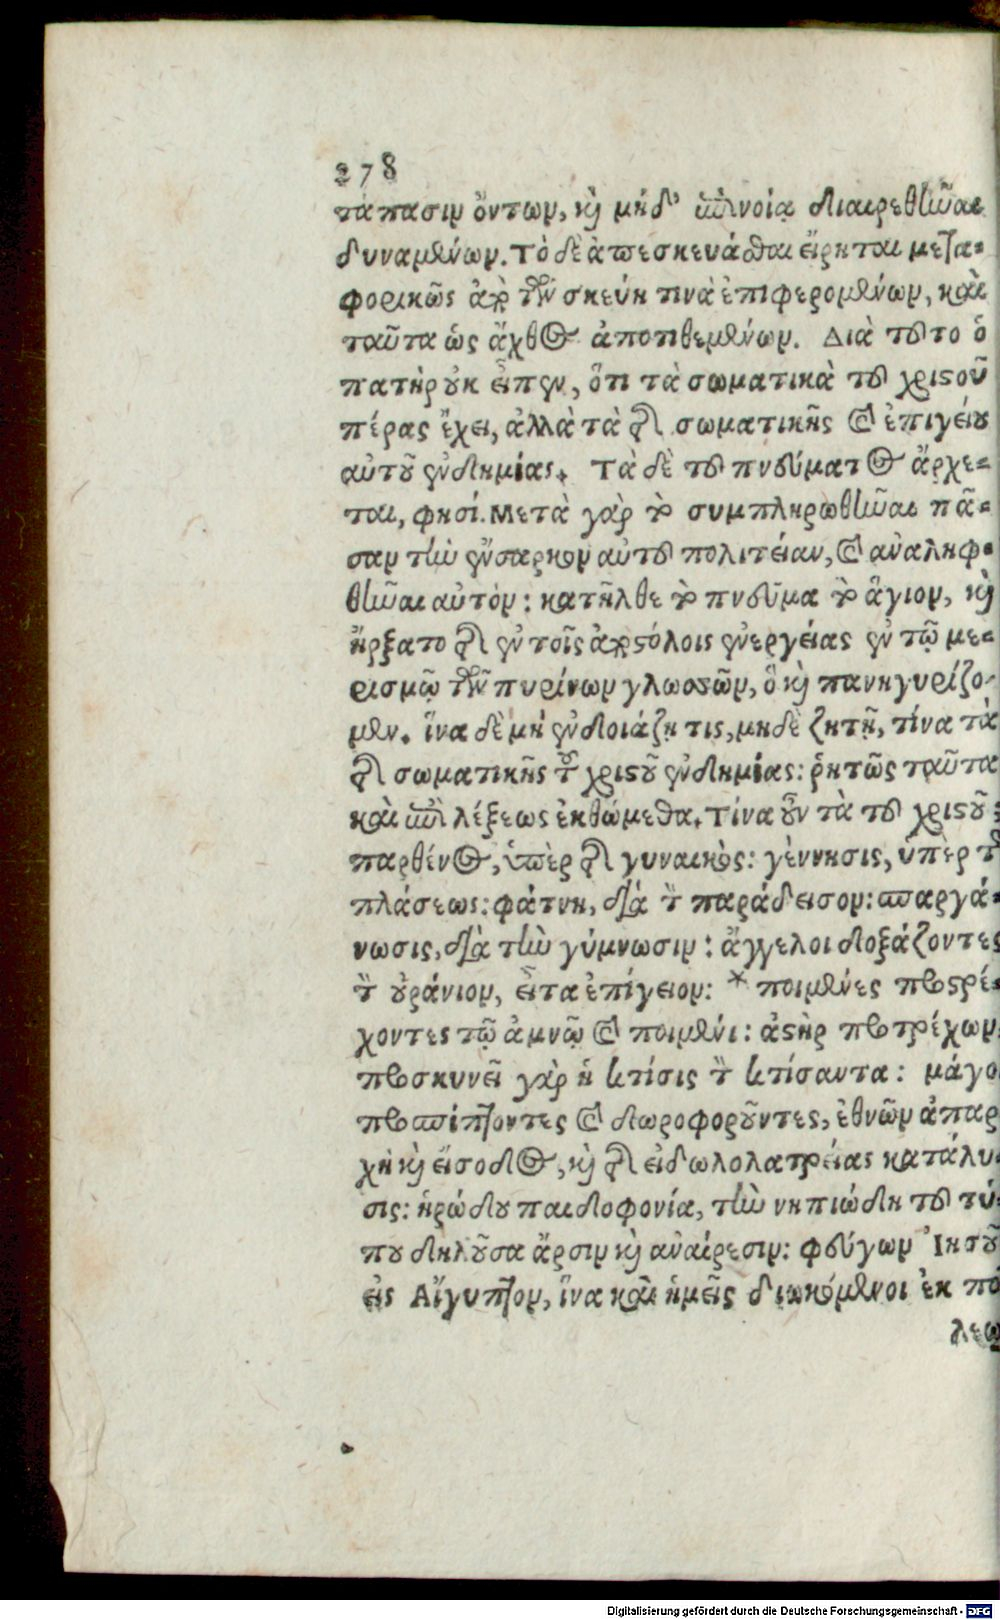 278
τάπασιν ὄντων, κὶ μήδ' ἐπινοίᾳ διαιρεθῆναι
δυναμένων. Τὸ δὲ ἀπεσκευάσθαι εἴρηται μετα-
φορικῶς ἀπὸ τῶν σκεύη τινὰ ἐπιφερομένων, καὶ
ταῦτα ὡς ἄχθος ἀποτιθεμένων. Διὰ τοῦτο ὁ
πατὴρ οὐκ εἶπεν, ὅτι τὰ σωματικὰ τοῦ χριστοῦ
πέρας ἔχει, ἀλλὰ τὰ τῆς σωματικῆς καὶ ἐπιγείου
αὐτοῦ ἐνδημίας. Τὰ δὲ τοῦ πνεύματος ἄρχε-
ται, φησί. Μετὰ γὰρ τὸ συμπληρωθῆναι πᾶ-
σαν τὴν ἔνσαρκον αὐτοῦ πολιτείαν, καὶ ἀναληφ-
θῆναι αὐτόν: κατῆλθε τὸ πνεῦμα τὸ ἅγιον, κὶ
ἤρξατο τῆς ἐν τοῖς ἀποστόλοις ἐνεργείας ἐν τῷ με-
ρισμῷ τῶν πυρίνων γλωσσῶν, ὃ κὶ πανηγυρίζο-
μεν. ἵνα δὲ μή ἐνδοιάζῃ τις, μηδὲ ζητῇ, τίνα τὰ
τῆς σωματικῆς τοῦ χριστοῦ ἐνδημίας: ῥητῶς ταῦτα
καὶ ἐπὶ λέξεως ἐκθώμεθα. Τίνα οὖν τὰ τοῦ χριστοῦ;
παρθένος, ὑπὲρ τῆς γυναικός: γέννησις, ὑπὲρ τῆς
πλάσεως: φάτνη, διὰ τὸν παράδεισον: σπαργά-
νωσις, διὰ τὴν γύμνωσιν: ἄγγελοι δοξάζοντες
τὸν οὐράνιον, εἶτα ἐπίγειον: * ποιμένες προστρέ-
χοντες τῷ ἀμνῷ καὶ ποιμένι: ἀστὴρ προτρέχων
προσκυνεῖ γὰρ ἡ κτίσις τὸν κτίσαντα: μάγο
προσπίπτοντες καὶ δωροφοροῦντες, ἐθνῶν ἀπαρ
χὴ κὶ εἴσοδος, κὶ τῆς εἰδωλολατρείας κατάλυ
σις: ἡρώδου παιδοφονία, τὴν νηπιώδη τοῦ τύ-
που δηλοῦσα ἄρσιν κὶ αναίρεσιν: φεύγων Ἰησοῦ
εἰς Αἴγυπτον, ἵνα καὶ ἡμεῖς διωκόμενοι ἐκ πό
λεω
Digitalisierung gefördert durch die Deutsche Forschungsgemeinschaft - DFG